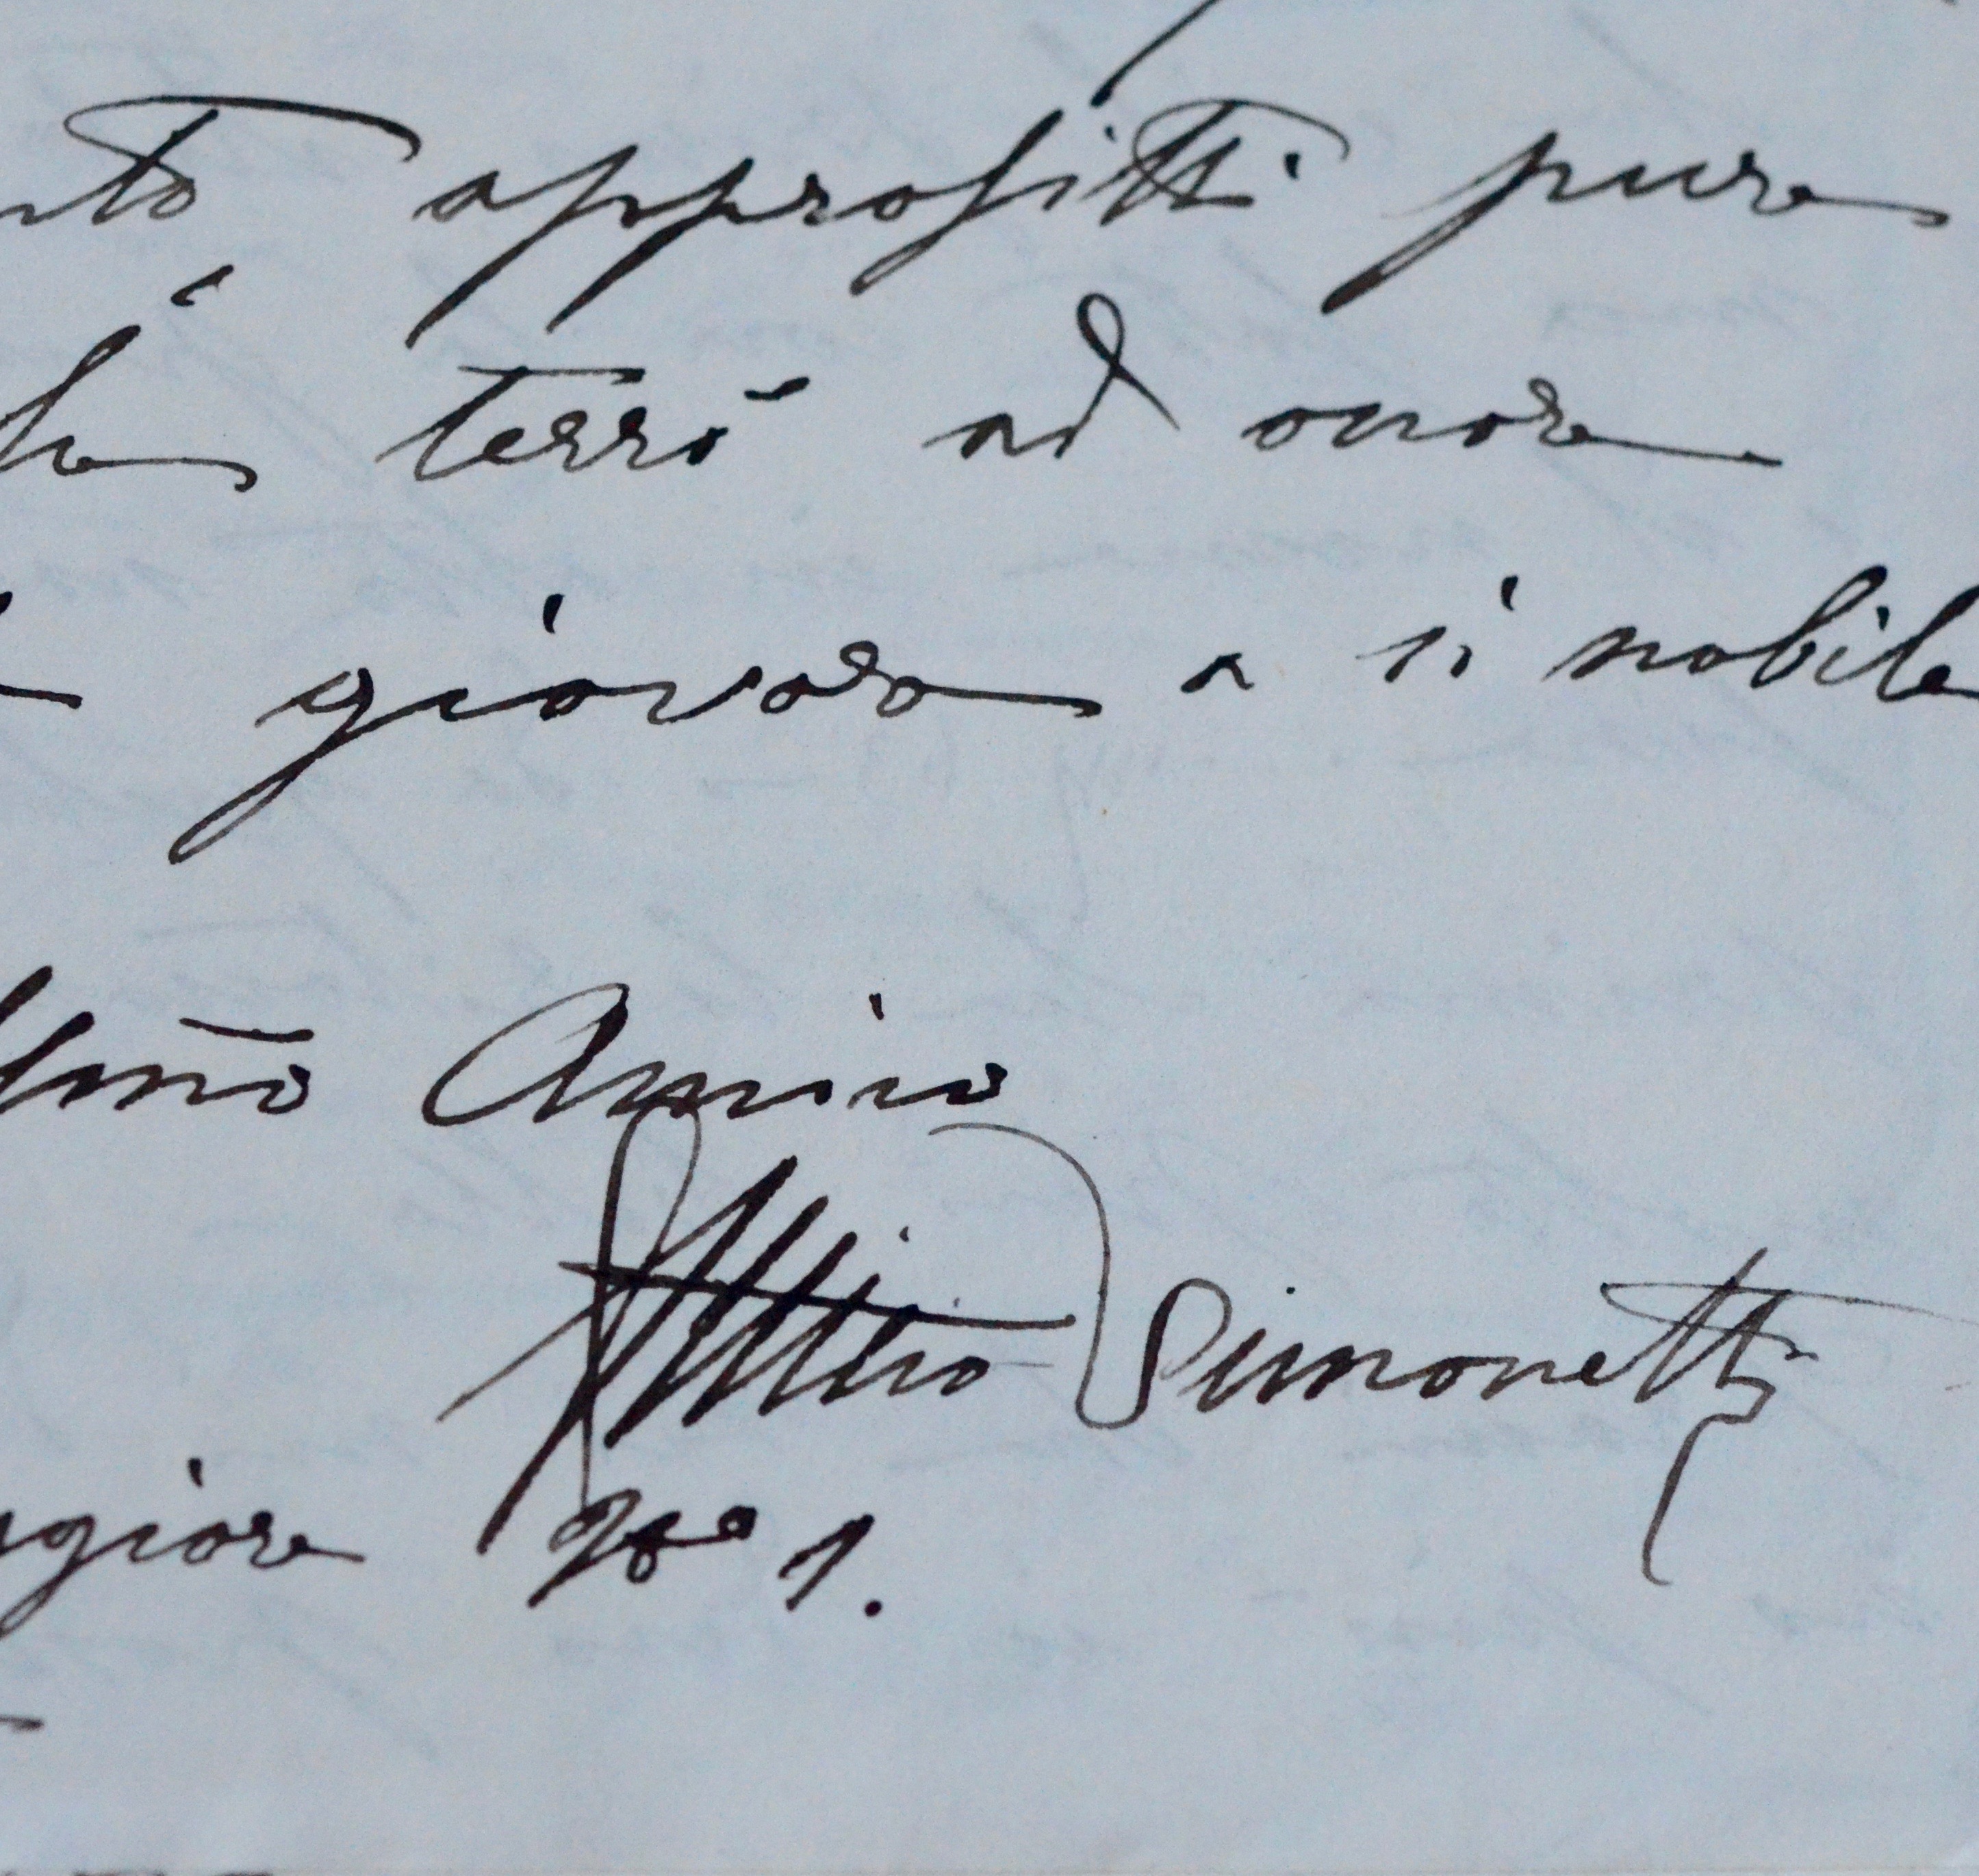 nto approfitti pure
le terrò ad onore
giovare a sì nobile
mo Amico
Attilio Simonetti
ggiore No 1.